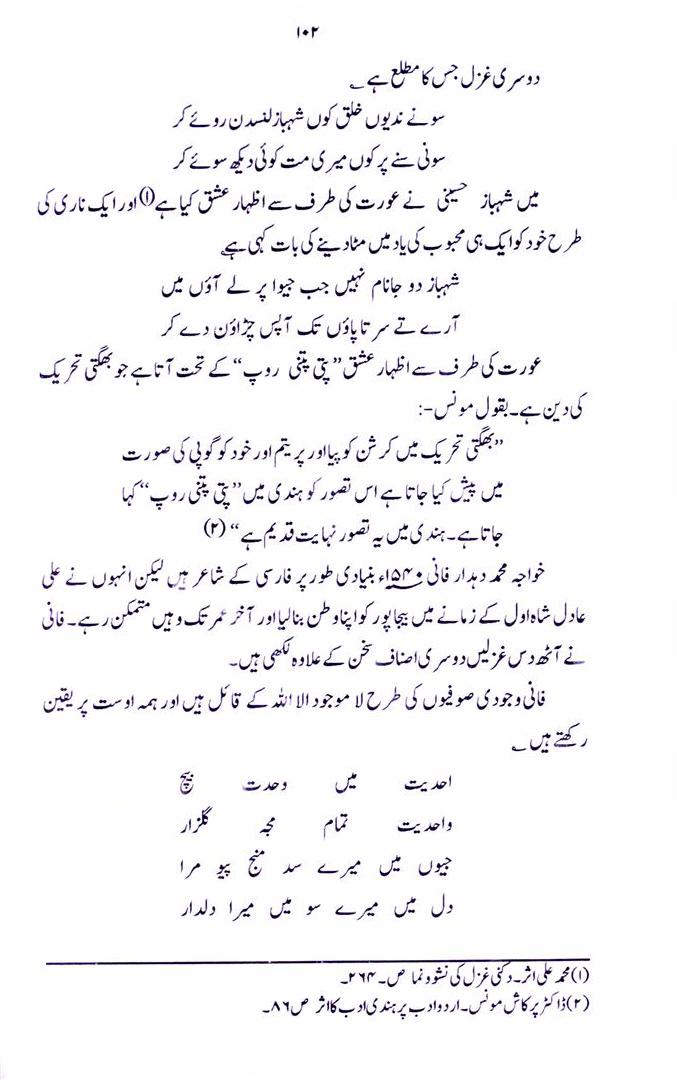 ۱۰۲
دوسری غزل جس کا مطلع ہے ؎
سونے ندیوں خلق کوں شہباز لنسدن روئے کر
سونی سنے پر کوں میری مت کوئی دیکھ سوئے کر
میں شہباز حسینی نے عورت کی طرف سے اظہار عشق کیا ہے(۱) اور ایک ناری کی
طرح خود کو ایک ہی محبوب کی یاد میں مٹا دینے کی بات کہی ہے
شہباز دو جانام نہیں جب جیوا پر لے آؤں میں
آرے تے سر تا پاؤں تک آپس چڑاؤن دے کر
عورت کی طرف سے اظہار عشق ”پتی پتنی روپ“ کے تحت آتا ہے جو بھگتی تحریک
کی دین ہے۔ بقول مونس:-
”بھگتی تحریک میں کرشن کو پیا اور پریتم اور خود کو گوپی کی صورت
میں پیش کیا جاتا ہے اس تصور کو ہندی میں ”پتی پتنی روپ“ کہا
جاتا ہے۔ ہندی میں یہ تصور نہایت قدیم ہے“ (۲)
خواجہ محمد دہدار فانی ۱۵۴۰ء بنیادی طور پر فارسی کے شاعر ہیں لیکن انہوں نے علی
عادل شاہ اول کے زمانے میں بیجاپور کو اپنا وطن بنا لیا اور آخر عمر تک وہیں متمکن رہے۔ فانی
نے آٹھ دس غزلیں دوسری اصناف سخن کے علاوہ لکھی ہیں۔
فانی وجودی صوفیوں کی طرح لا موجود الا اللہ کے قائل ہیں اور ہمہ اوست پر یقین
رکھتے ہیں ؎
احدیت میں وحدت بیچ
واحدیت تمام مجہ گلزار
جیوں میں میرے سد منج پیو مرا
دل میں میرے سو میں میرا دلدار
(۱) محمد علی اثر۔ دکنی غزل کی نشوونما ص۔ ۲۶۴۔
(۲) ڈاکٹر پرکاش مونس۔ اردو ادب پر ہندی ادب کا اثر ص ۸۶۔